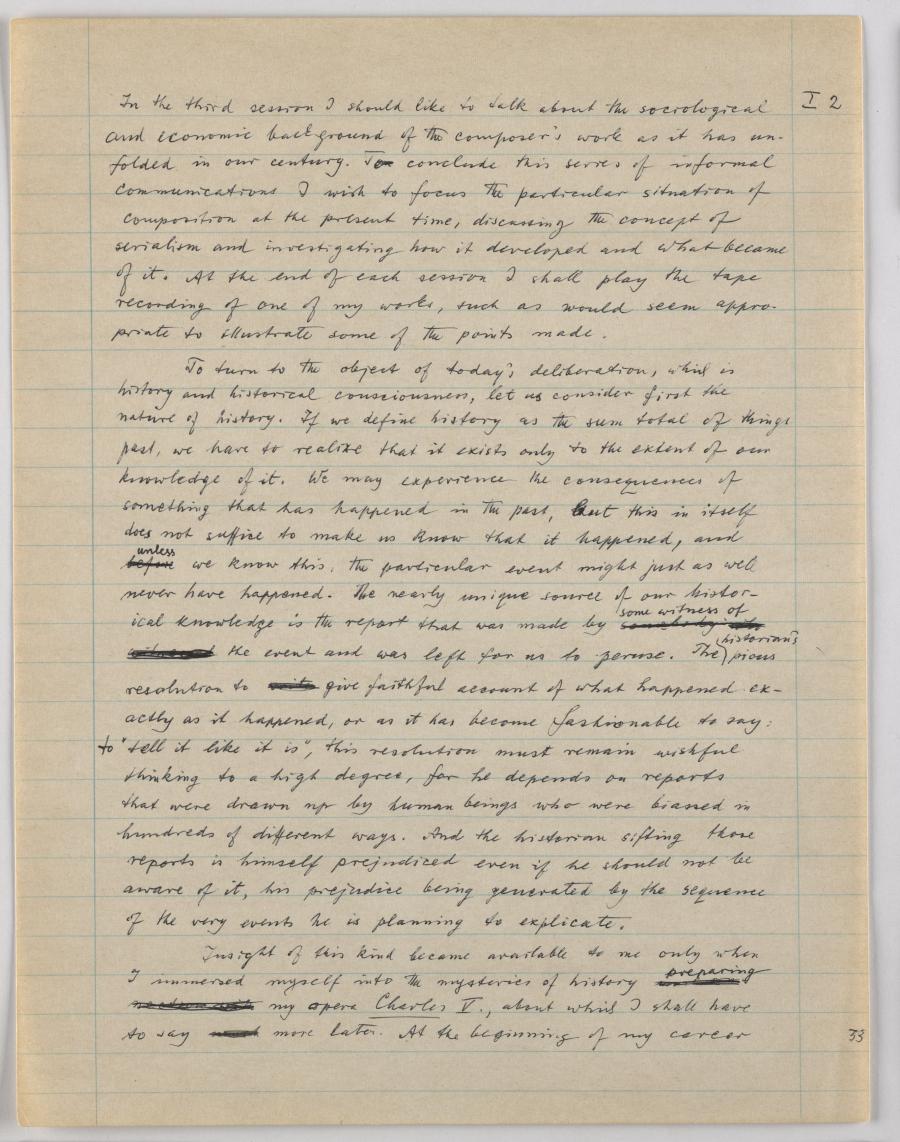 I 2
In the third session I should like to talk about the sociological
and economic background of the composer's work as it has un-
folded in our century. To conclude this series of informal
communications I wish to focus the particular situation of
composition at the present time, discussing the concept of
serialism and investigating how it developed and what became
of it. At the end of each session I shall play the tape
recording of one of my works, such as would seem appro-
priate to illustrate some of the points made.
To turn to the object of today's deliberation, which is
history and historical consciousness, let us consider first the
nature of history. If we define history as the sum total of things
past, we have to realize that it exists only to the extent of our
knowledge of it. We may experience the consequences of
something that has happened in the past, but this in itself
does not suffice to make us know that it happened, and
unless
before we know this, the particular event might just as well
never have happened. The nearly unique source of our histor-
some witness of
ical knowledge is the report that was made by somebody
historian's
the event and was left for us to peruse. The pious
resolution to give faithful account of what happened ex-
actly as it happened, or as it has become fashionable to say:
to "tell it like it is", this resolution must remain wishful
thinking to a high degree, for he depends on reports
that were drawn up by human beings who were biassed in
hundreds of different ways. And the historian sifting those
reports is himself prejudiced even if he should not be
aware of it, his prejudice being generated by the sequence
of the very events he is planning to explicate.
Insight of this kind became available to me only when
preparing
I immersed myself into the mysteries of history
my opera Charles V., about which I shall have
to say more later. At the beginning of my career
33